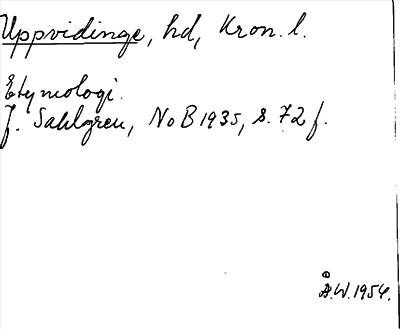 Uppvidinge, hd, Kron. l.
Etymologi.
J. Sahlgren, NoB 1935, s. 72 f.
Å.W. 1954.